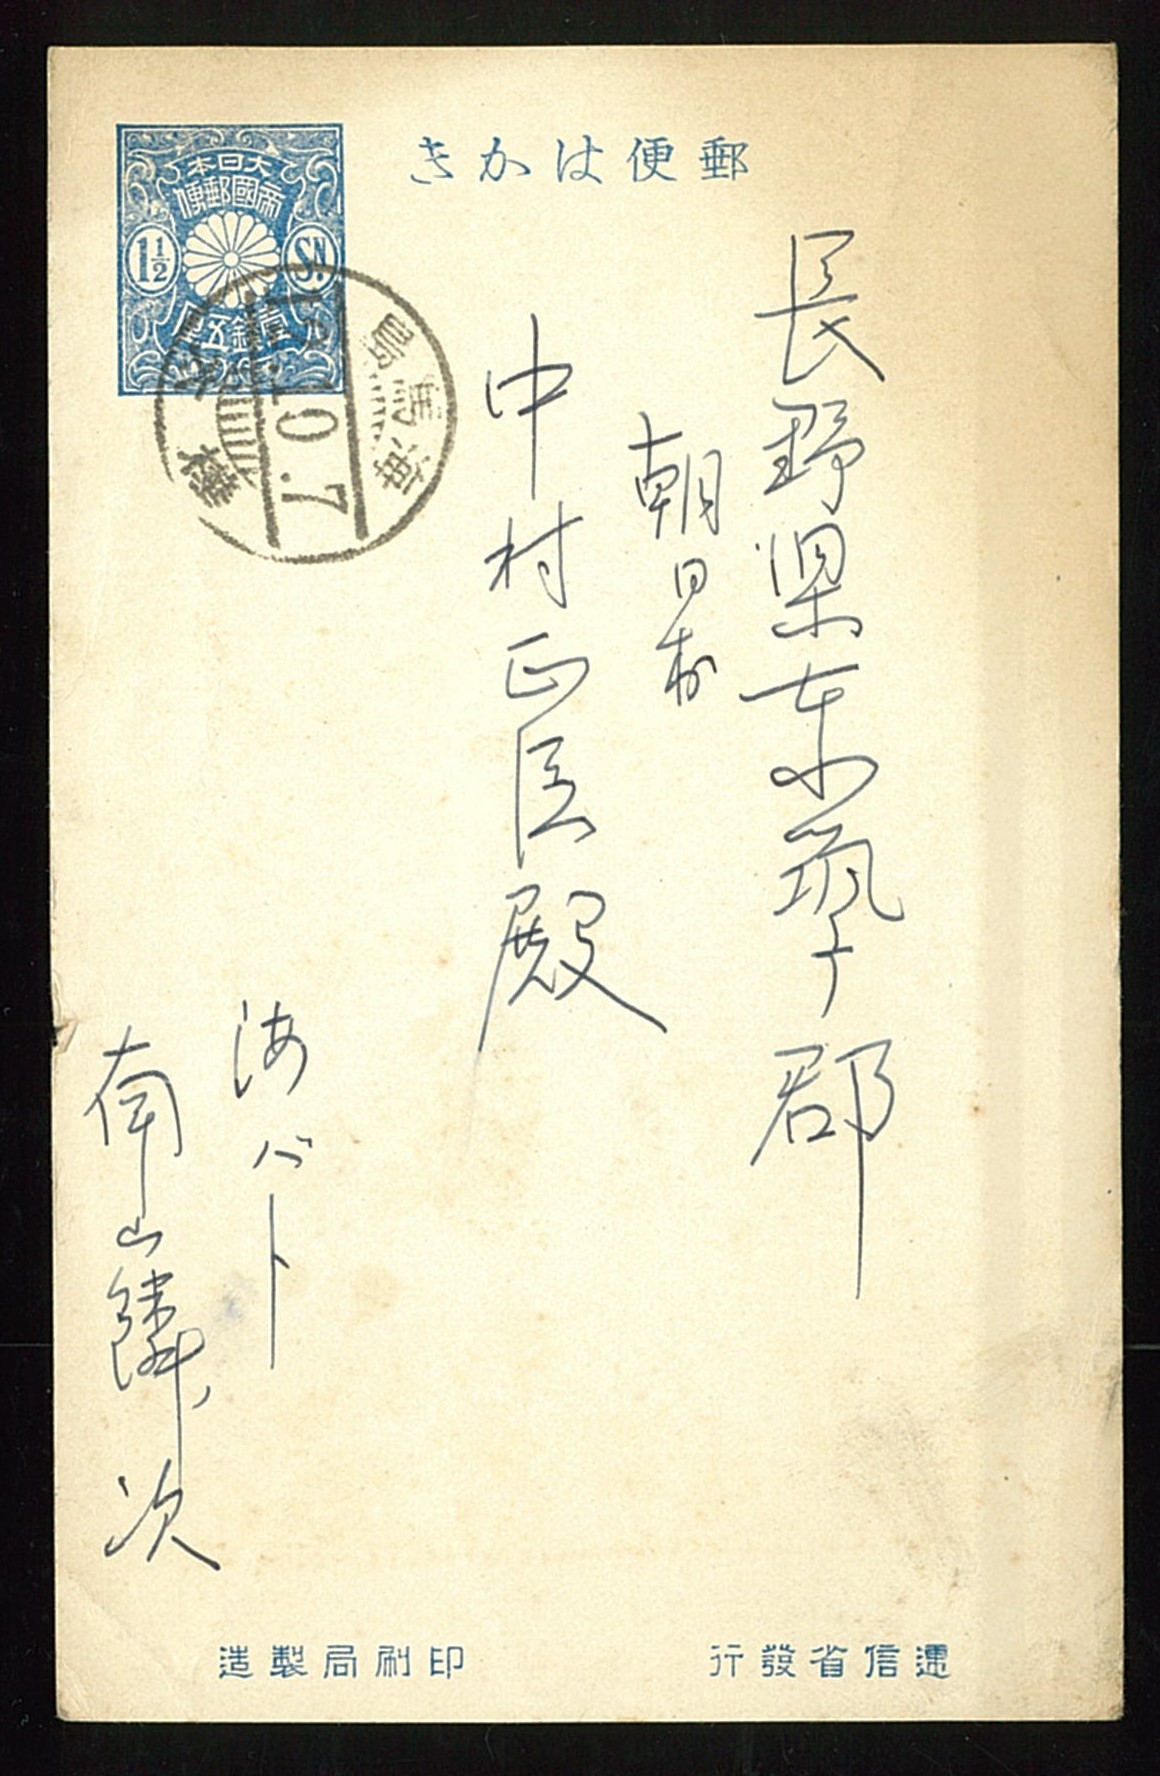 郵便はかき
大日本
帝國郵便
1½
Sn.
壹銭五厘
10.7
海馬島
樺太
長野県東筑摩郡
朝日村
中村正臣殿
海バト
南山鱗次
逓信省發行
印刷局製造